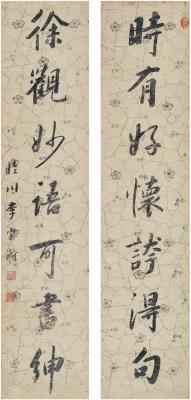 時有好懷誇得句
徐觀妙語可書紳
李宗瀚